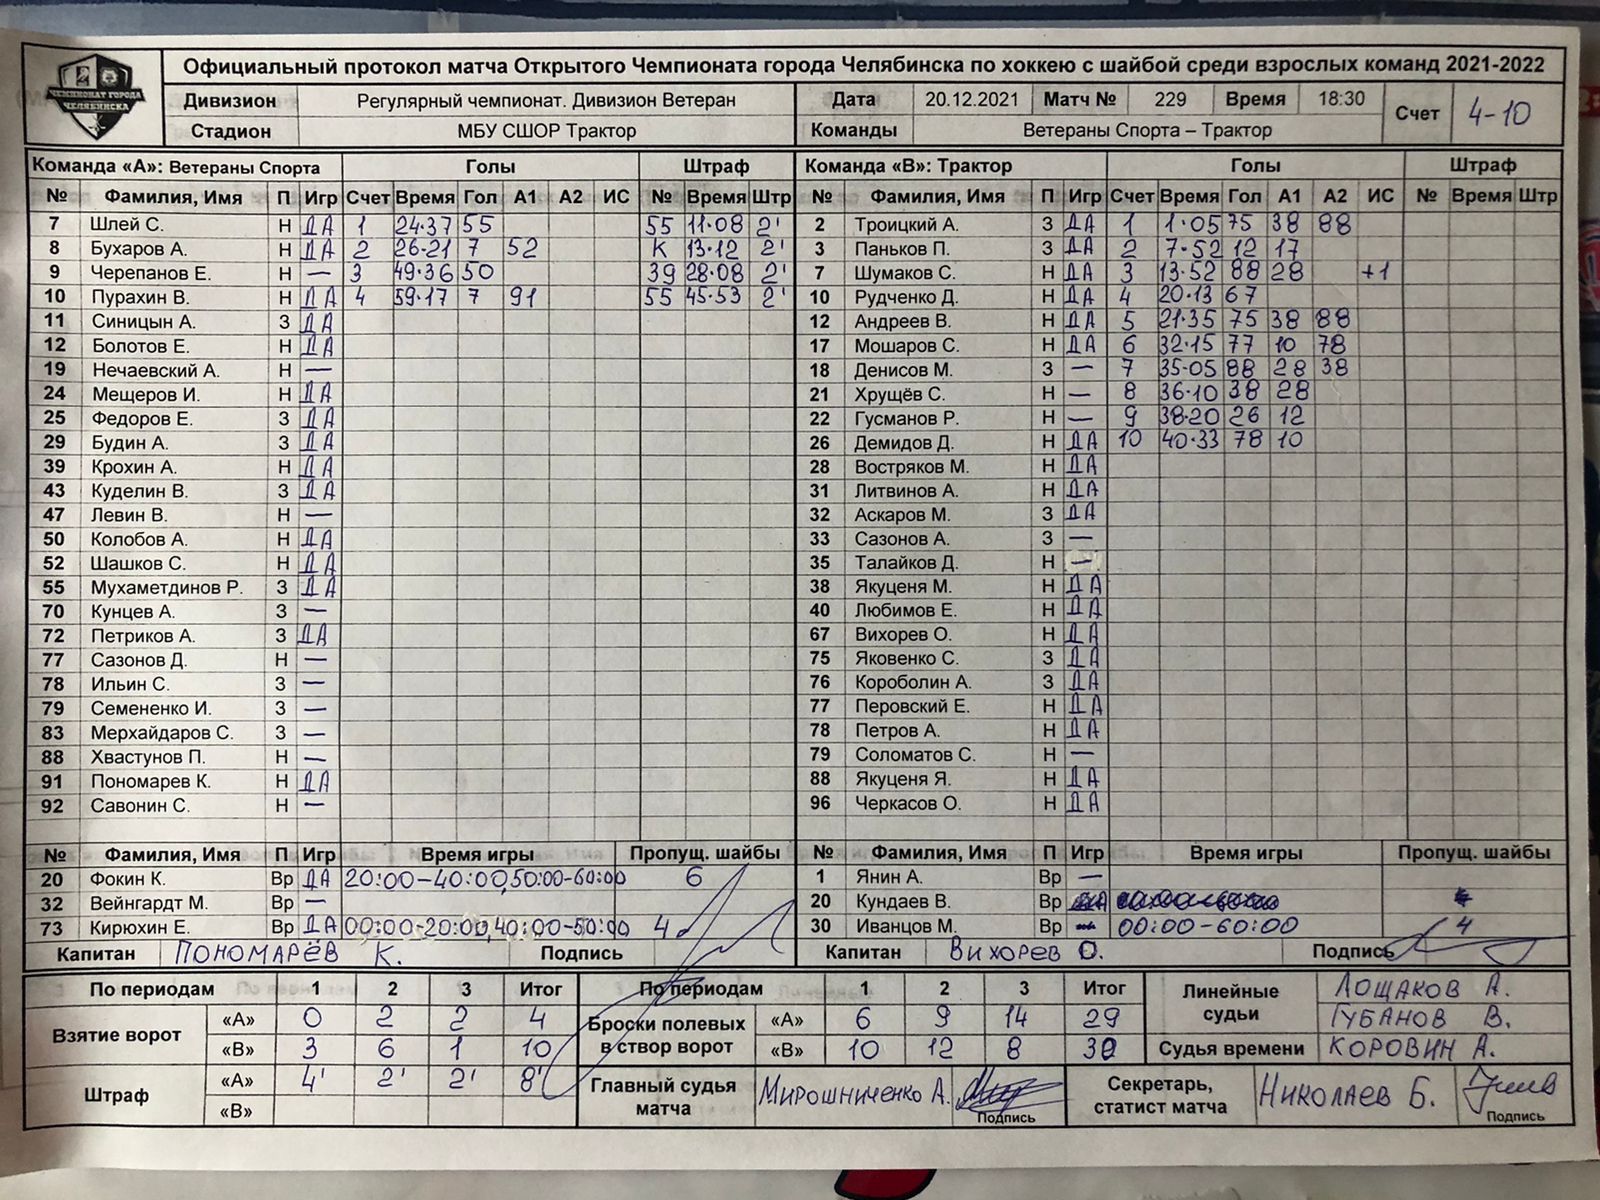 ЧЕМПИОНАТ ГОРОДА
ЧЕЛЯБИНСКА
Официальный протокол матча Открытого Чемпионата города Челябинска по хоккею с шайбой среди взрослых команд 2021-2022
Дивизион Регулярный чемпионат. Дивизион Ветеран Дата 20.12.2021 Матч № 229 Время 18:30 Счет 4-10
Стадион МБУ СШОР Трактор Команды Ветераны Спорта – Трактор
Команда «А»: Ветераны Спорта Голы Штраф Команда «В»: Трактор Голы Штраф
№ Фамилия, Имя П Игр Счет Время Гол А1 А2 ИС № Время Штр № Фамилия, Имя П Игр Счет Время Гол А1 А2 ИС № Время Штр
7 Шлей С. Н ДА 1 24·37 55 55 11·08 2' 2 Троицкий А. З ДА 1 1·05 75 38 88
8 Бухаров А. Н ДА 2 26·21 7 52 К 13·12 2' 3 Паньков П. З ДА 2 7·52 12 17
9 Черепанов Е. Н — 3 49·36 50 39 28·08 2' 7 Шумаков С. Н ДА 3 13·52 88 28 +1
10 Пурахин В. Н ДА 4 59·17 7 91 55 45·53 2' 10 Рудченко Д. Н ДА 4 20·13 67
11 Синицын А. З ДА 12 Андреев В. Н ДА 5 21·35 75 38 88
12 Болотов Е. Н ДА 17 Мошаров С. Н ДА 6 32·15 77 10 78
19 Нечаевский А. Н — 18 Денисов М. З — 7 35-05 88 28 38
24 Мещеров И. Н ДА 21 Хрущёв С. Н — 8 36·10 38 28
25 Федоров Е. З ДА 22 Гусманов Р. Н — 9 38·20 26 12
29 Будин А. З ДА 26 Демидов Д. Н ДА 10 40·33 78 10
39 Крохин А. Н ДА 28 Востряков М. Н ДА
43 Куделин В. З ДА 31 Литвинов А. Н ДА
47 Левин В. Н — 32 Аскаров М. З ДА
50 Колобов А. Н ДА 33 Сазонов А. З —
52 Шашков С. Н ДА 35 Талайков Д. Н —
55 Мухаметдинов Р. З ДА 38 Якуценя М. Н ДА
70 Кунцев А. З — 40 Любимов Е. Н ДА
72 Петриков А. З ДА 67 Вихорев О. Н ДА
77 Сазонов Д. Н — 75 Яковенко С. З ДА
78 Ильин С. З — 76 Короболин А. З ДА
79 Семененко И. З — 77 Перовский Е. Н ДА
83 Мерхайдаров С. З — 78 Петров А. Н ДА
88 Хвастунов П. Н — 79 Соломатов С. Н —
91 Пономарев К. Н ДА 88 Якуценя Я. Н ДА
92 Савонин С. Н — 96 Черкасов О. Н ДА
№ Фамилия, Имя П Игр Время игры Пропущ. шайбы № Фамилия, Имя П Игр Время игры Пропущ. шайбы
20 Фокин К. Вр ДА 20:00-40:00,50:00-60:00 6 1 Янин А. Вр —
32 Вейнгардт М. Вр — 20 Кундаев В. Вр
73 Кирюхин Е. Вр ДА 00:00-20:00,40:00-50:00 4 30 Иванцов М. Вр 00:00-60:00 4
Капитан ПОНОМАРЁВ К. Подпись Капитан ВИХОРЕВ О. Подпись
По периодам 1 2 3 Итог По периодам 1 2 3 Итог Линейные судьи ЛОЩАКОВ А.
Взятие ворот «А» 0 2 2 4 Броски полевых в створ ворот «А» 6 9 14 29 ГУБАНОВ В.
«В» 3 6 1 10 «В» 10 12 8 30 Судья времени КОРОВИН А.
Штраф «А» 4' 2' 2' 8' Главный судья матча МИРОШНИЧЕНКО А. Подпись Секретарь, статист матча НИКОЛАЕВ Б. Подпись
«В»